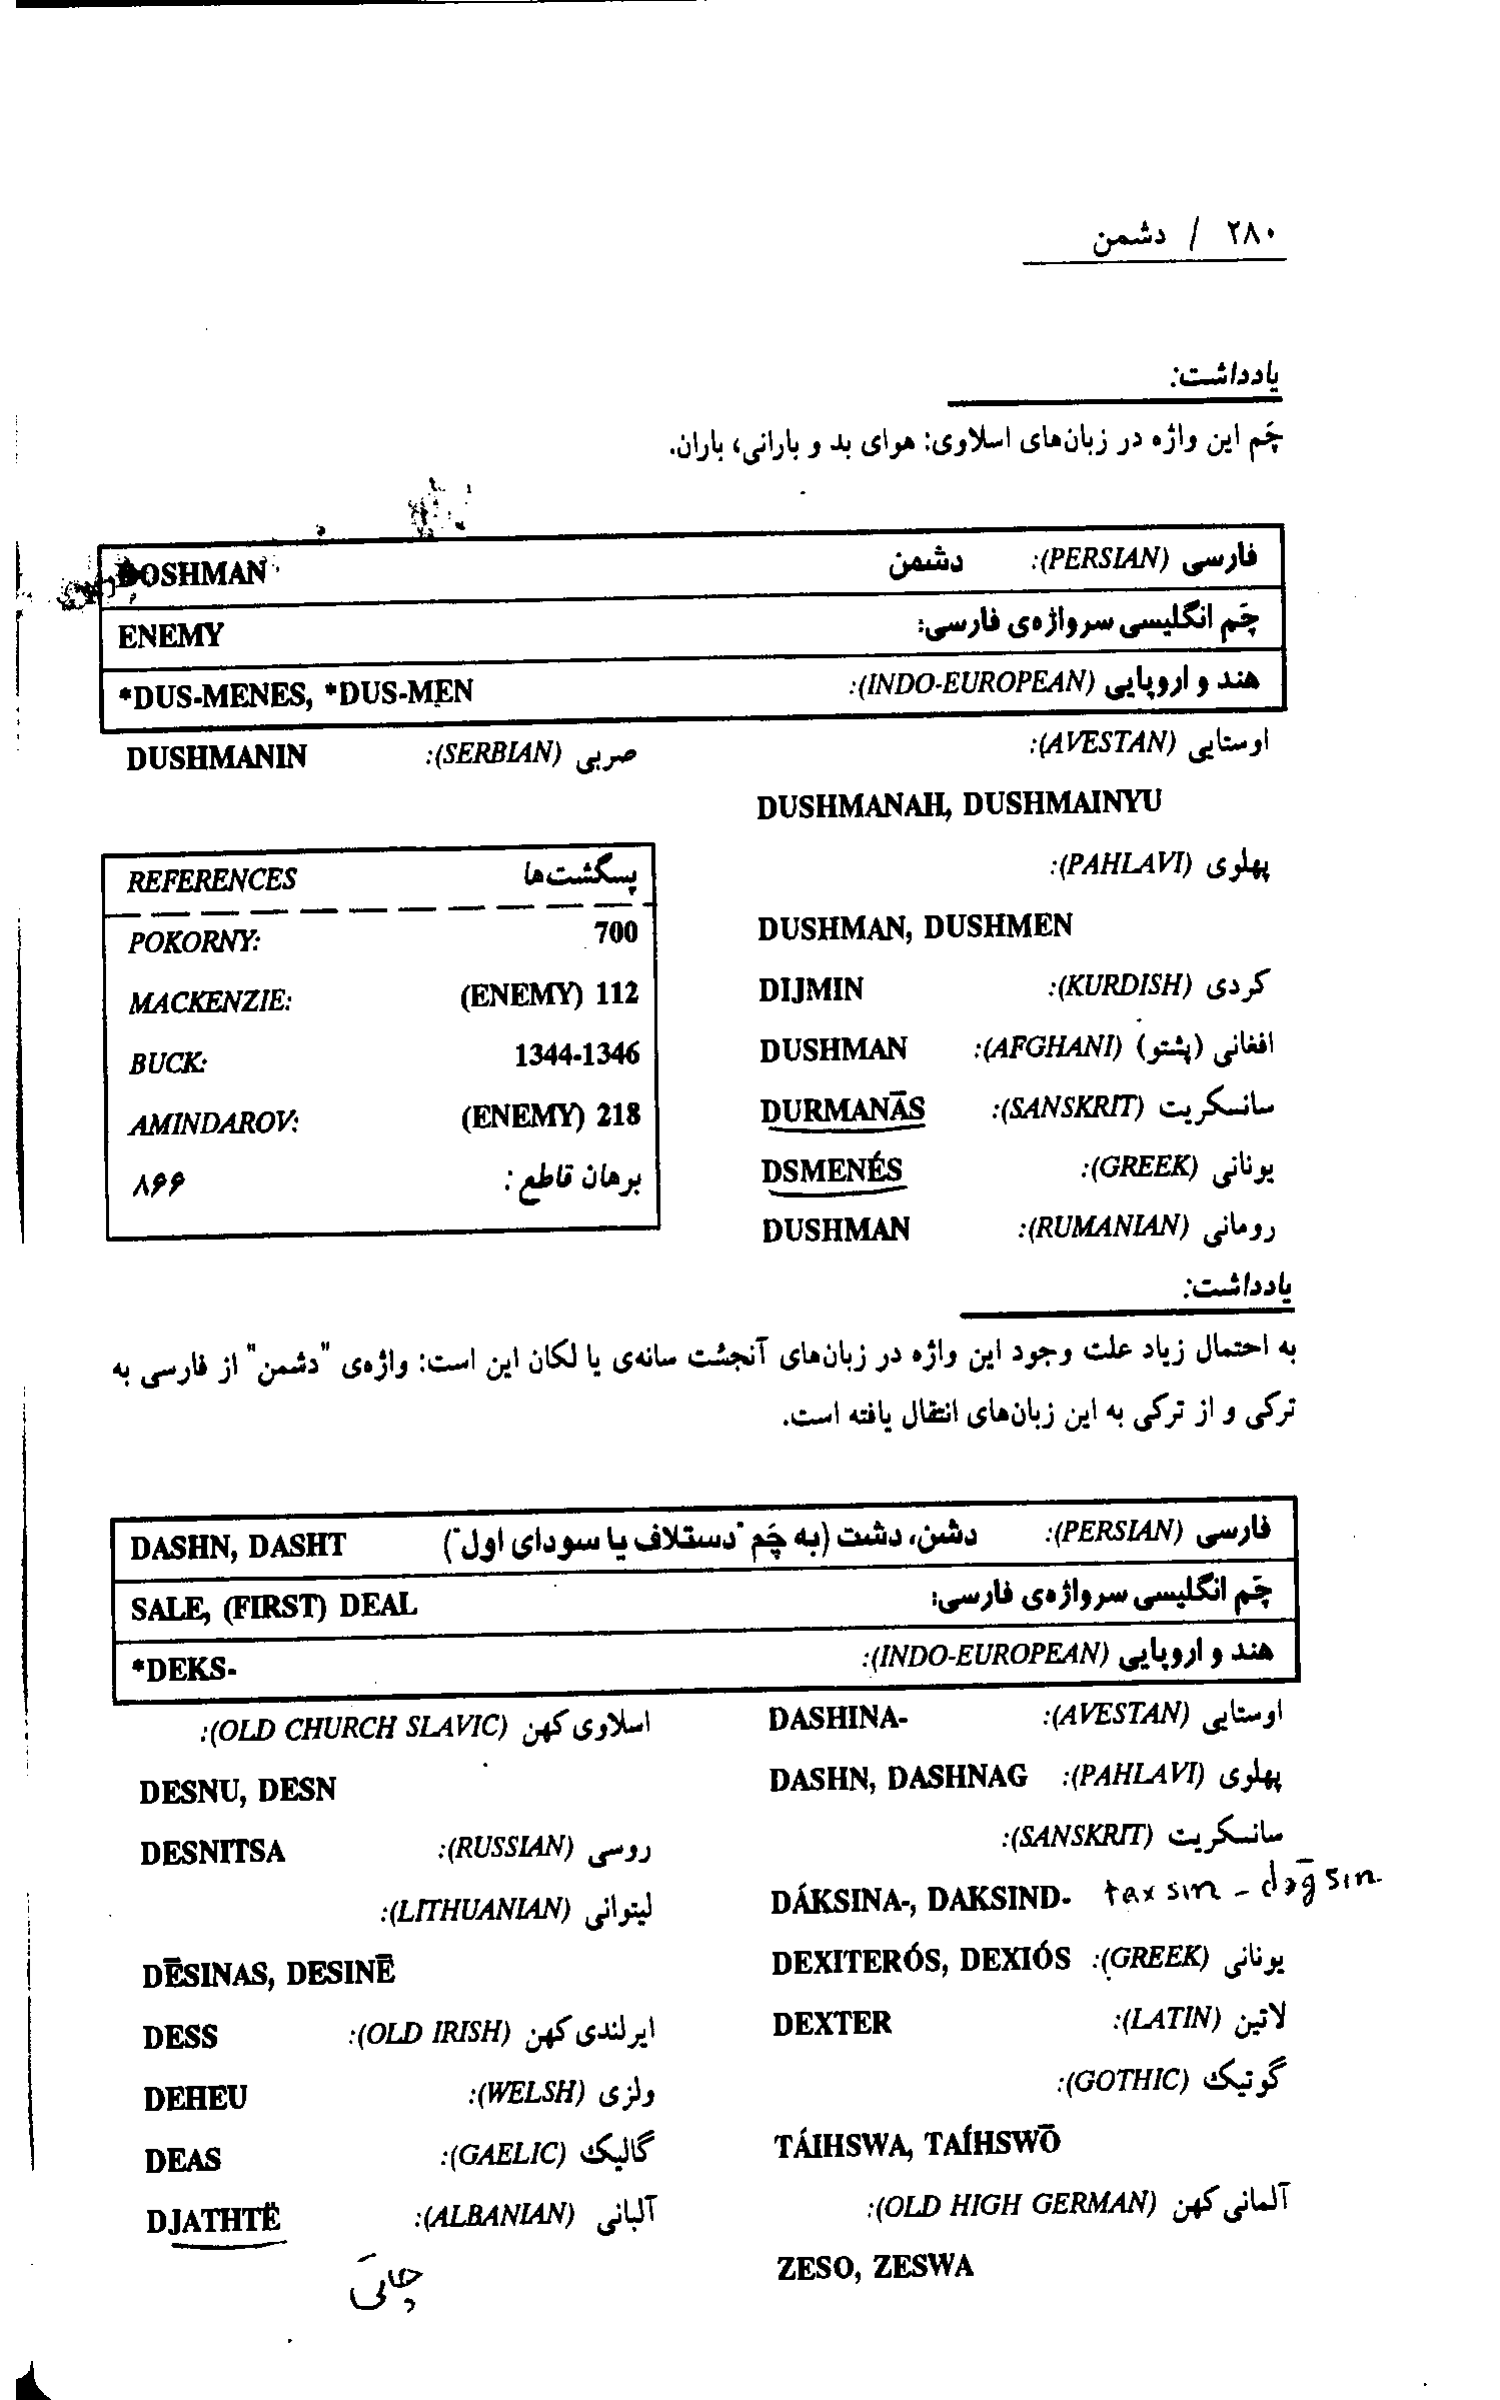 ۲۸۰ / دشمن
یادداشت:
چَم این واژه در زبان‌های اسلاوی: هوای بد و بارانی، باران.
فارسی (PERSIAN): دشمن DOSHMAN
چَم انگلیسی سرواژه‌ی فارسی: ENEMY
هند و اروپایی (INDO-EUROPEAN): *DUS-MENES, *DUS-MEN
اوستایی (AVESTAN):
DUSHMANAH, DUSHMAINYU
پهلوی (PAHLAVI):
DUSHMAN, DUSHMEN
کردی (KURDISH): DIJMIN
افغانی (پشتو) (AFGHANI): DUSHMAN
سانسکریت (SANSKRIT): DURMANĀS
یونانی (GREEK): DSMENÉS
رومانی (RUMANIAN): DUSHMAN
صربی (SERBIAN): DUSHMANIN
پسگشت‌ها REFERENCES
POKORNY: 700
MACKENZIE: (ENEMY) 112
BUCK: 1344-1346
AMINDAROV: (ENEMY) 218
برهان قاطع : ۸۶۶
یادداشت:
به احتمال زیاد علت وجود این واژه در زبان‌های آنجشت سانه‌ی یا لکان این است: واژه‌ی "دشمن" از فارسی به
ترکی و از ترکی به این زبان‌های انتقال یافته است.
فارسی (PERSIAN): دشن، دشت (به چَم "دستلاف یا سودای اول") DASHN, DASHT
چَم انگلیسی سرواژه‌ی فارسی: SALE, (FIRST) DEAL
هند و اروپایی (INDO-EUROPEAN): *DEKS-
اوستایی (AVESTAN): DASHINA-
پهلوی (PAHLAVI): DASHN, DASHNAG
سانسکریت (SANSKRIT):
DÁKSINA-, DAKSIND- taxsın - dəḡsin
یونانی (GREEK): DEXITERÓS, DEXIÓS
لاتین (LATIN): DEXTER
گوتیک (GOTHIC):
TÁIHSWA, TAÍHSWŌ
آلمانی کهن (OLD HIGH GERMAN):
ZESO, ZESWA
اسلاوی کهن (OLD CHURCH SLAVIC):
DESNU, DESN
روسی (RUSSIAN): DESNITSA
لیتوانی (LITHUANIAN):
DĒSINAS, DESINĒ
ایرلندی کهن (OLD IRISH): DESS
ولزی (WELSH): DEHEU
گالیک (GAELIC): DEAS
آلبانی (ALBANIAN): DJATHTË